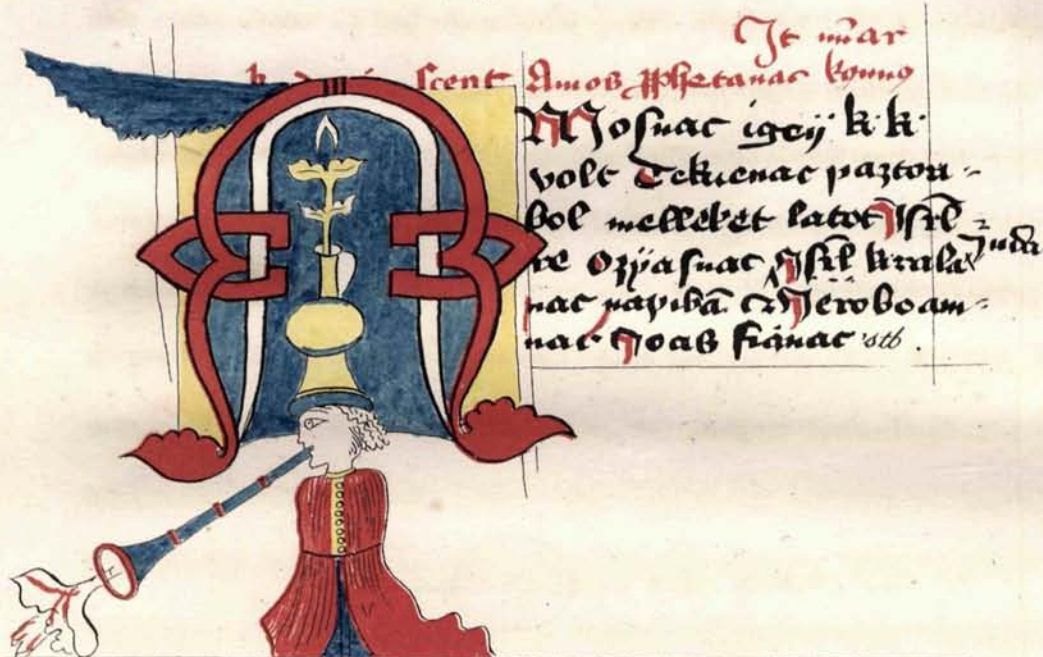 It mar
k scent Amos ꝓphetanac konuo
AMosnac igeÿ k· k·
volt Tekuenac paztori-
bol melleket latot Isrl-
re Ozÿasnac Isrl kirala Iuda
nac napibā ⁊ Ieroboam-
nac Ioas fianac stb.